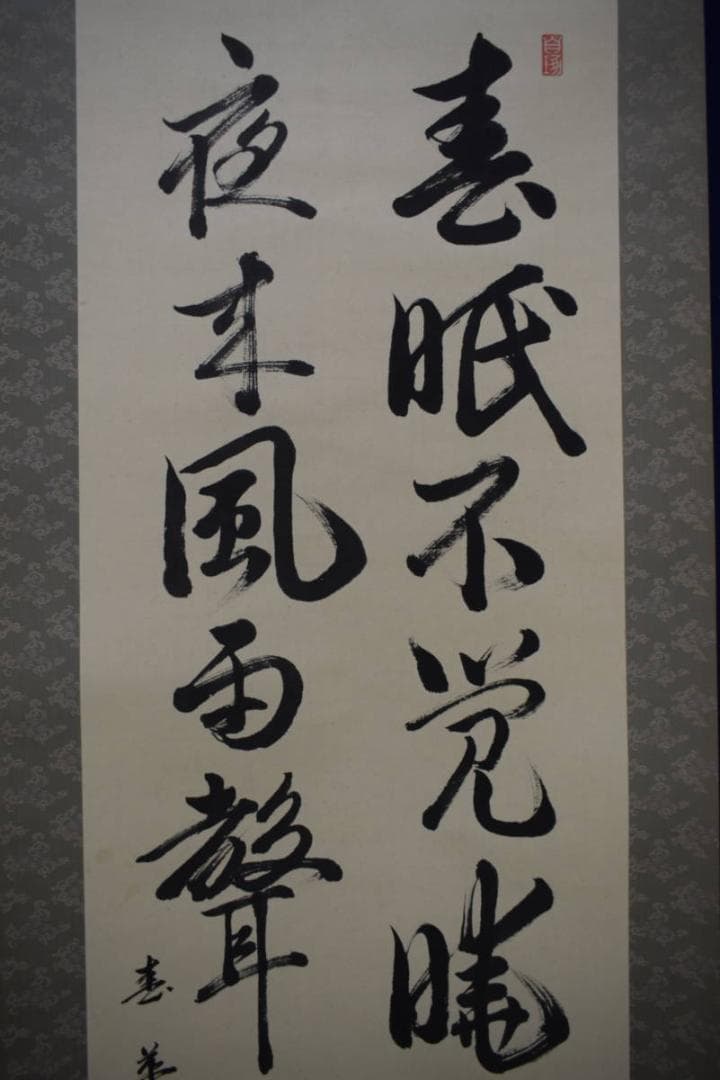 春眠不覚暁
夜来風雨聲
春